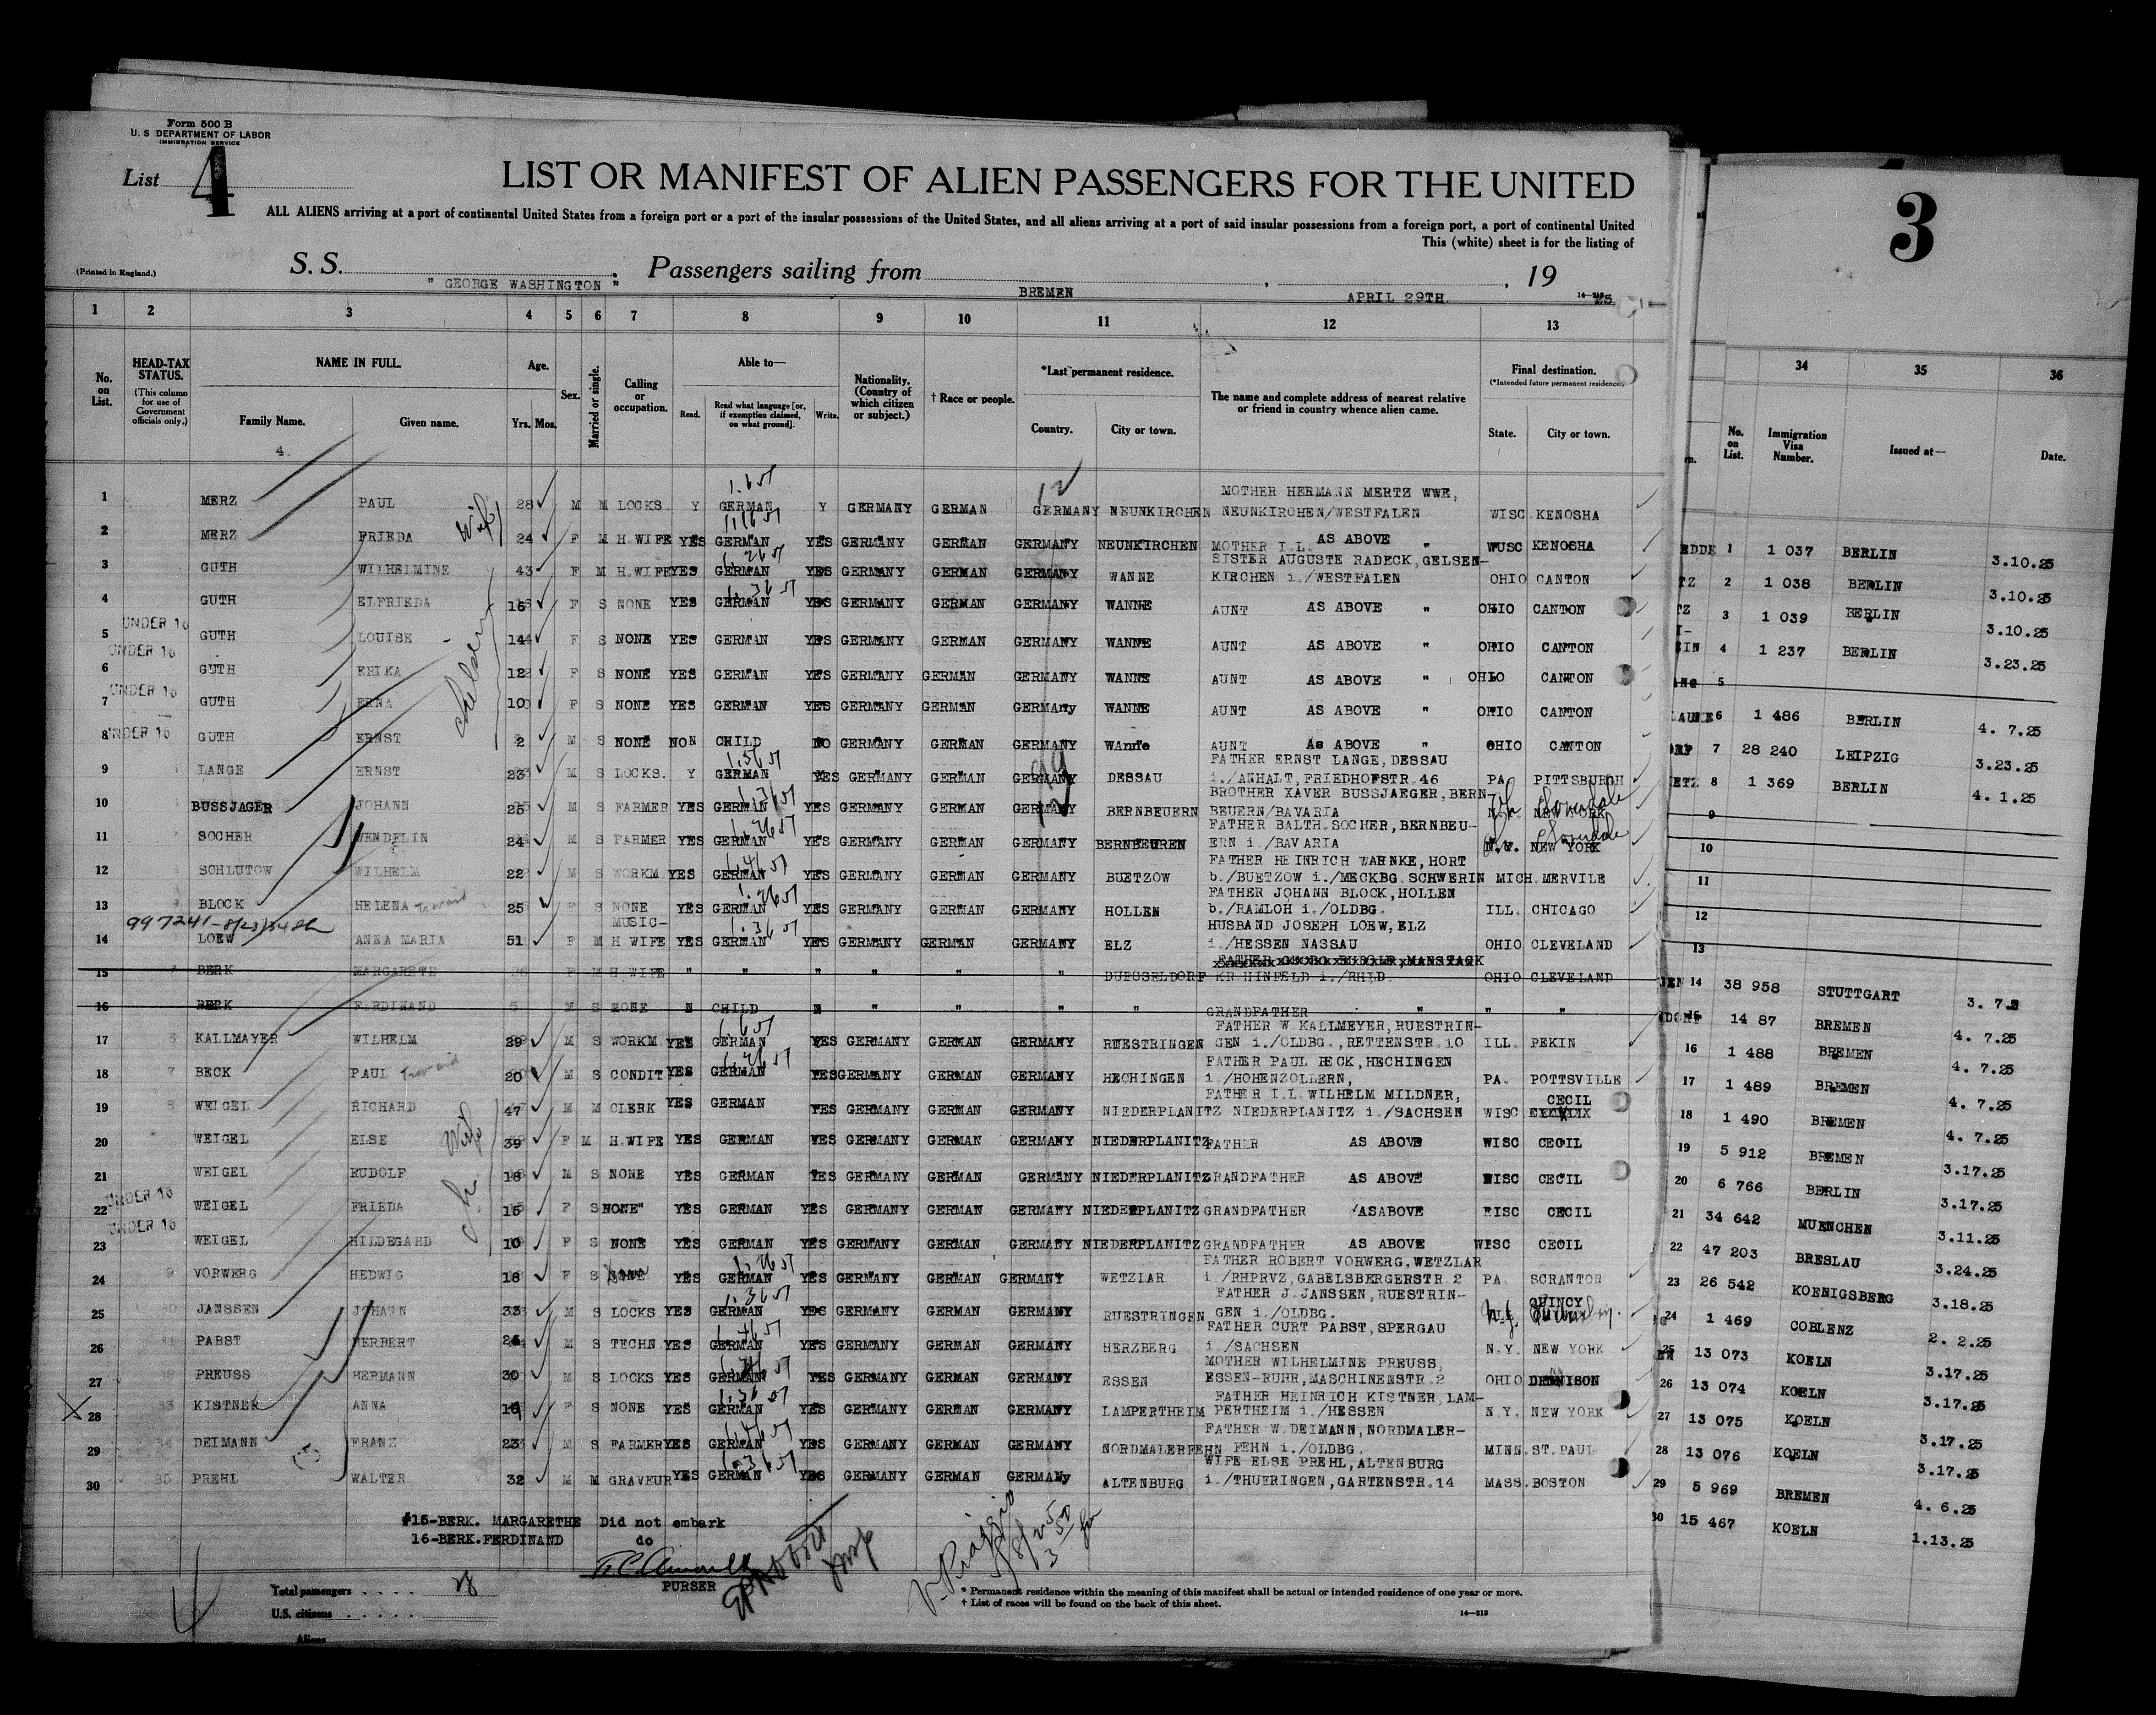 Form 500 B
U. S DEPARTMENT OF LABOR
IMMIGRATION SERVICE
List 4
LIST OR MANIFEST OF ALIEN PASSENGERS FOR THE UNITED
ALL ALIENS arriving at a port of continental United States from a foreign port or a port of the insular possessions of the United States, and all aliens arriving at a port of said insular possessions from a foreign port, a port of continental United
This (white) sheet is for the listing of
(Printed in England.)
S. S. "GEORGE WASHINGTON" Passengers sailing from BREMEN, APRIL 29TH, 19 25
14-213
1 2 3 4 5 6 7 8 9 10 11 12 13
No. on List.
HEAD-TAX STATUS.
(This column for use of Government officials only.)
NAME IN FULL.
Family Name. Given name.
Age.
Yrs. Mos.
Sex.
Married or single.
Calling or occupation.
Able to—
Read. Read what language [or, if exemption claimed, on what ground]. Write.
Nationality. (Country of which citizen or subject.)
† Race or people.
*Last permanent residence.
Country. City or town.
The name and complete address of nearest relative or friend in country whence alien came.
Final destination.
(*Intended future permanent residence)
State. City or town.
4
MOTHER HERMANN MERTZ WWE,
1 MERZ PAUL 28 M M LOCKS. Y GERMAN Y GERMANY GERMAN GERMANY NEUNKIRCHEN NEUNKIRCHEN/WESTFALEN WISC KENOSHA
2 MERZ FRIEDA wife 24 F M H.WIFE YES GERMAN YES GERMANY GERMAN GERMANY NEUNKIRCHEN MOTHER I.L. AS ABOVE " WUSC KENOSHA
SISTER AUGUSTE RADECK, GELSEN-
3 GUTH WILHELMINE 43 F M H.WIFE YES GERMAN YES GERMANY GERMAN GERMANY WANNE KIRCHEN i./WESTFALEN OHIO CANTON
4 GUTH ELFRIEDA 16 F S NONE YES GERMAN YES GERMANY GERMAN GERMANY WANNE AUNT AS ABOVE " OHIO CANTON
5 UNDER 16 GUTH LOUISE 14 F S NONE YES GERMAN YES GERMANY GERMAN GERMANY WANNE AUNT AS ABOVE " OHIO CANTON
6 UNDER 16 GUTH ERIKA 12 F S NONE YES GERMAN YES GERMANY GERMAN GERMANY WANNE AUNT AS ABOVE " OHIO CANTON
7 UNDER 16 GUTH ERNA 10 F S NONE YES GERMAN YES GERMANY GERMAN GERMANy WANNE AUNT AS ABOVE " OHIO CANTON
8 UNDER 16 GUTH ERNST 2 M S NONE NON CHILD NO GERMANY GERMAN GERMANY WAnne AUNT As ABOVE " OHIO CANTON
children
FATHER ERNST LANGE, DESSAU
9 LANGE ERNST 23 M S LOCKS. Y GERMAN YES GERMANY GERMAN GERMANY DESSAU i./ANHALT, FRIEDHOFSTR.46 PA. PITTSBURGH
BROTHER XAVER BUSSJAEGER, BERN-
10 BUSSJAGER JOHANN 25 M S FARMER YES GERMAN YES GERMANY GERMAN GERMANY BERNBEUERN BEUERN/BAVARIA N.Y. NEW YORK
FATHER BALTH.SOCHER, BERNBEU-
11 SOCHER WENDELIN 24 M S FARMER YES GERMAN YES GERMANY GERMAN GERMANY BERNBEUREN ERN i./BAVARIA N.Y. NEW YORK
FATHER HEINRICH WAHNKE, HORT
12 SCHLUTOW WILHELM 22 M S WORKM YES GERMAN YES GERMANY GERMAN GERMANY BUETZOW b./BUETZOW i./MECKBG SCHWERIN MICH.MERVILE
FATHER JOHANN BLOCK, HOLLEN
13 BLOCK HELENA 25 F S NONE YES GERMAN YES GERMANY GERMAN GERMANY HOLLEN b./RAMLOH i./OLDBG. ILL. CHICAGO
MUSIC-
HUSBAND JOSEPH LOEW, ELZ
14 LOEW ANNA MARIA 51 F M H.WIFE YES GERMAN YES GERMANY GERMAN GERMANY ELZ i./HESSEN NASSAU OHIO CLEVELAND
15 BERK MARGARETE F M H.WIFE " " " " " " DUESSELDORF KR HINFELD i./RHLD. OHIO CLEVELAND
16 BERK FERDINAND 5 M S NONE N CHILD N " " " " GRANDFATHER " " "
FATHER W.KALLMEYER, RUESTRIN-
17 KALLMAYER WILHELM 29 M S WORKM YES GERMAN YES GERMANY GERMAN GERMANY RUESTRINGEN GEN i./OLDBG., RETTENSTR.10 ILL. PEKIN
FATHER PAUL BECK, HECHINGEN
18 BECK PAUL 20 M S CONDIT YES GERMAN YES GERMANY GERMAN GERMANY HECHINGEN i./HOHENZOLLERN, PA. POTTSVILLE
FATHER I.L.WILHELM MILDNER, CECIL
19 WEIGEL RICHARD 47 M M CLERK YES GERMAN YES GERMANY GERMAN GERMANY NIEDERPLANITZ NIEDERPLANITZ i./SACHSEN WISC
20 WEIGEL ELSE 39 F M H.WIFE YES GERMAN YES GERMANY GERMAN GERMANY NIEDERPLANITZ FATHER AS ABOVE WISC CECIL
21 WEIGEL RUDOLF 18 M S NONE YES GERMAN YES GERMANY GERMAN GERMANY NIEDERPLANITZ GRANDFATHER AS ABOVE WISC CECIL
22 UNDER 16 WEIGEL FRIEDA 15 F S NONE YES GERMAN YES GERMANY GERMAN GERMANY NIEDERPLANITZ GRANDFATHER ASABOVE WISC CECIL
23 UNDER 16 WEIGEL HILDEGARD 10 F S NONE YES GERMAN YES GERMANY GERMAN GERMANY NIEDERPLANITZ GRANDFATHER AS ABOVE WISC CECIL
FATHER ROBERT VORWERG, WETZLAR
24 VORWERG HEDWIG 18 F S YES GERMAN YES GERMANY GERMAN GERMANY WETZLAR i./RHPRVZ, GABELSBERGERSTR.2 PA. SCRANTON
FATHER J.JANSSEN, RUESTRIN- QUINCY
25 JANSSEN JOHANN 33 M S LOCKS YES GERMAN YES GERMANY GERMAN GERMANY RUESTRINGEN GEN i./OLDBG.
FATHER CURT PABST, SPERGAU
26 PABST HERBERT M S TECHN YES GERMAN YES GERMANY GERMAN GERMANY HERZBERG i./SACHSEN N.Y. NEW YORK
MOTHER WILHELMINE PREUSS,
27 PREUSS HERMANN 30 M S LOCKS YES GERMAN YES GERMANY GERMAN GERMANY ESSEN ESSEN-RUHR, MASCHINENSTR.2 OHIO DENNISON
FATHER HEINRICH KISTNER, LAM-
28 KISTNER ANNA F S NONE YES GERMAN YES GERMANY GERMAN GERMANY LAMPERTHEIM PERTHEIM i./HESSEN N.Y. NEW YORK
FATHER W.DEIMANN, NORDMALER-
29 DEIMANN FRANZ 23 M S FARMER YES GERMAN YES GERMANY GERMAN GERMANY NORDMALERFEHN FEHN i./OLDBG. MINN.ST.PAUL
WIFE ELSE PREHL, ALTENBURG
30 PREHL WALTER 32 M M GRAVEUR YES GERMAN YES GERMANY GERMAN GERMANy ALTENBURG i./THUERINGEN, GARTENSTR.14 MASS.BOSTON
#15-BERK. MARGARETHE Did not embark
16-BERK.FERDINAND do
PURSER
Total passengers 28
U.S. citizens
Aliens
* Permanent residence within the meaning of this manifest shall be actual or intended residence of one year or more.
† List of races will be found on the back of this sheet.
14-213
3
34 35 36
No. on List. Immigration Visa Number. Issued at— Date.
1 1 037 BERLIN 3.10.25
2 1 038 BERLIN 3.10.25
3 1 039 BERLIN 3.10.25
4 1 237 BERLIN 3.23.25
5
6 1 486 BERLIN 4. 7.25
7 28 240 LEIPZIG 3.23.25
8 1 369 BERLIN 4. 1.25
9
10
11
12
13
14 38 958 STUTTGART 3. 7.2
15 14 87 BREMEN 4. 7.25
16 1 488 BREMEN 4. 7.25
17 1 489 BREMEN 4. 7.25
18 1 490 BREMEN 4. 7.25
19 5 912 BREMEN 3.17.25
20 6 766 BERLIN 3.17.25
21 34 642 MUENCHEN 3.11.25
22 47 203 BRESLAU 3.24.25
23 26 542 KOENIGSBERG 3.18.25
24 1 469 COBLENZ 2. 2.25
25 13 073 KOELN 3.17.25
26 13 074 KOELN 3.17.25
27 13 075 KOELN 3.17.25
28 13 076 KOELN 3.17.25
29 5 969 BREMEN 4. 6.25
30 15 467 KOELN 1.13.25